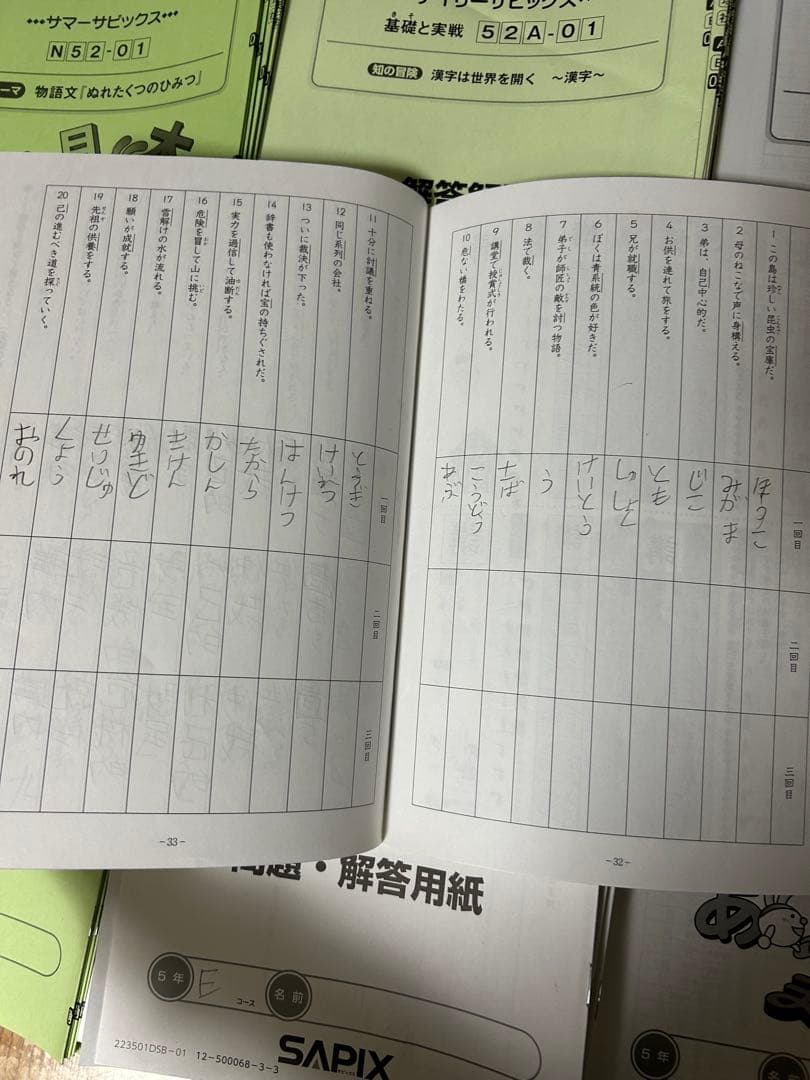 サマーサピックス
N52-01
物語文『ぬれたくつのひみつ』
デイリーサピックス
基礎と実戦 52A-01
知の冒険 漢字は世界を開く 〜漢字〜
一回目
二回目
三回目
1 この島は珍しい昆虫の宝庫だ。 ほうこ
2 母のねこなで声に身構える。 みがま
3 弟は、自己中心的だ。 じこ
4 お供を連れて旅をする。 とも
5 兄が就職する。 しゅうしょく
6 ぼくは青系統の色が好きだ。 けいとう
7 弟子が師匠の敵を討つ物語。 う
8 法で裁く。 さば
9 講堂で授賞式が行われる。 こうどう
10 危ない橋をわたる。 あぶ
一回目
二回目
三回目
11 十分に討議を重ねる。 とうぎ
12 同じ系列の会社。 けいれつ
13 ついに裁決が下った。 はんけつ
14 辞書も使わなければ宝の持ちぐされだ。 たから
15 実力を過信して油断する。 かしん
16 危険を冒して山に挑む。 きけん
17 雪解けの水が流れる。 ゆきど
18 願いが成就する。 せいじゅ
19 先祖の供養をする。 くよう
20 己の進むべき道を探っていく。 おのれ
-32-
-33-
問題・解答用紙
5年 E コース 名前
223501DSB-01 12-500068-3-3
SAPIX
サピックス
5年
名前